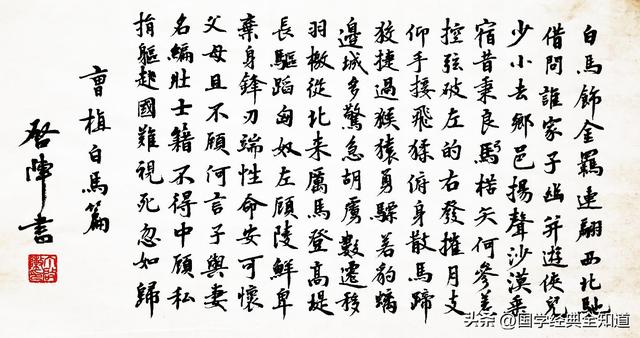 白馬飾金羈連翩西北馳
借問誰家子幽并遊俠兒
少小去鄉邑揚聲沙漠垂
宿昔秉良馬楛矢何參差
控弦破左的右發摧月支
仰手接飛猱俯身散馬蹄
狡捷過猴猿勇驃若豹螭
邊城多驚急胡虜數遷移
羽檄從北来厲馬登高堤
長驅蹈匈奴左顧陵鮮卑
棄身鋒刃端性命安可懷
父母且不顧何言子與妻
名編壯士籍不得中顧私
捐軀赴國難視死忽如歸
曹植白馬篇
書
头条 @国学经典全知道